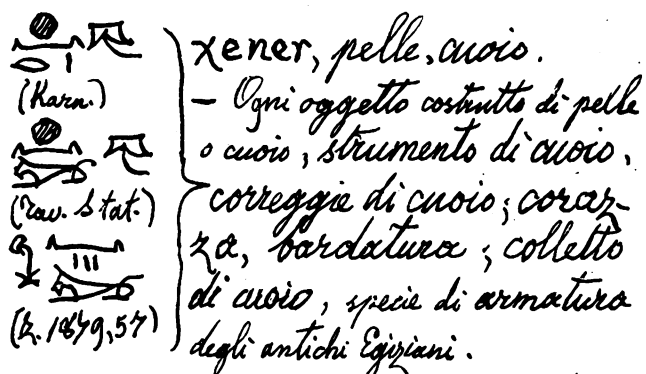 𓐍𓈖 𓄛
𓂋𓏤
(Karn.)
𓐍𓈖 𓄛
𓃭
(Tav. Stat.)
𓈖
𓏥 𓃭
(Z. 1879, 57)
χener, pelle, cuoio.
— Ogni oggetto costrutto di pelle
o cuoio, strumento di cuoio,
correggie di cuoio; coraz-
za, bardatura; colletto
di cuoio, specie di armatura
degli antichi Egiziani.